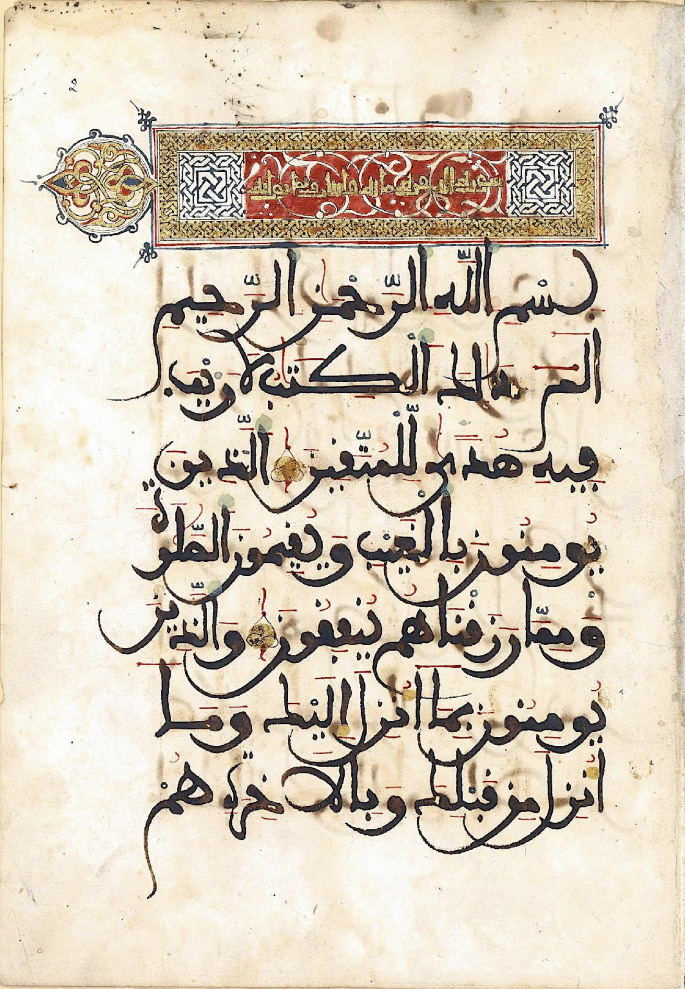 سورة البقرة
بِسْمِ اللَّهِ الرَّحْمٰنِ الرَّحِيمِ
الم ذلك الْكتب لا ريْب
فيه هدى لّلْمتّقين الّذين
يومنون بالْغيْب ويقيمون الصّلوة
وممّا رزقْناهم ينْفقون والّذين
يومنون بما أنْزل إليْك وما
أنْزل من قبْلك وبالاخرة همْ